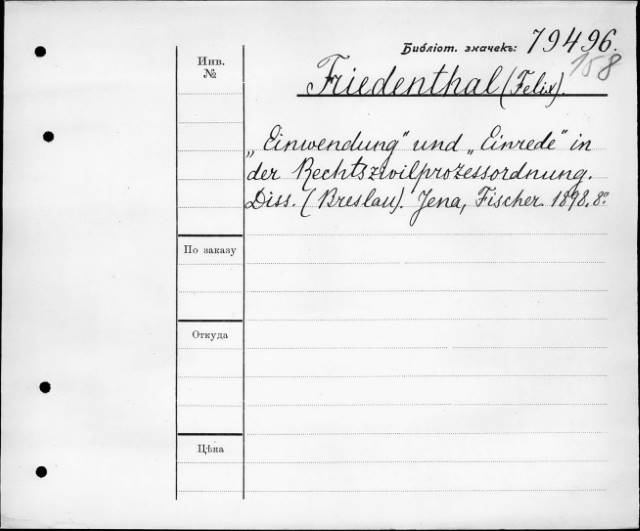 Библіот. значекъ: 79496.
158
Инв.
№
Friedenthal (Felix).
„Einwendung" und „Einrede" in
der Rechtszivilprozessordnung.
Diss. (Breslau). Jena, Fischer. 1898. 8º
По заказу
Откуда
Цѣна